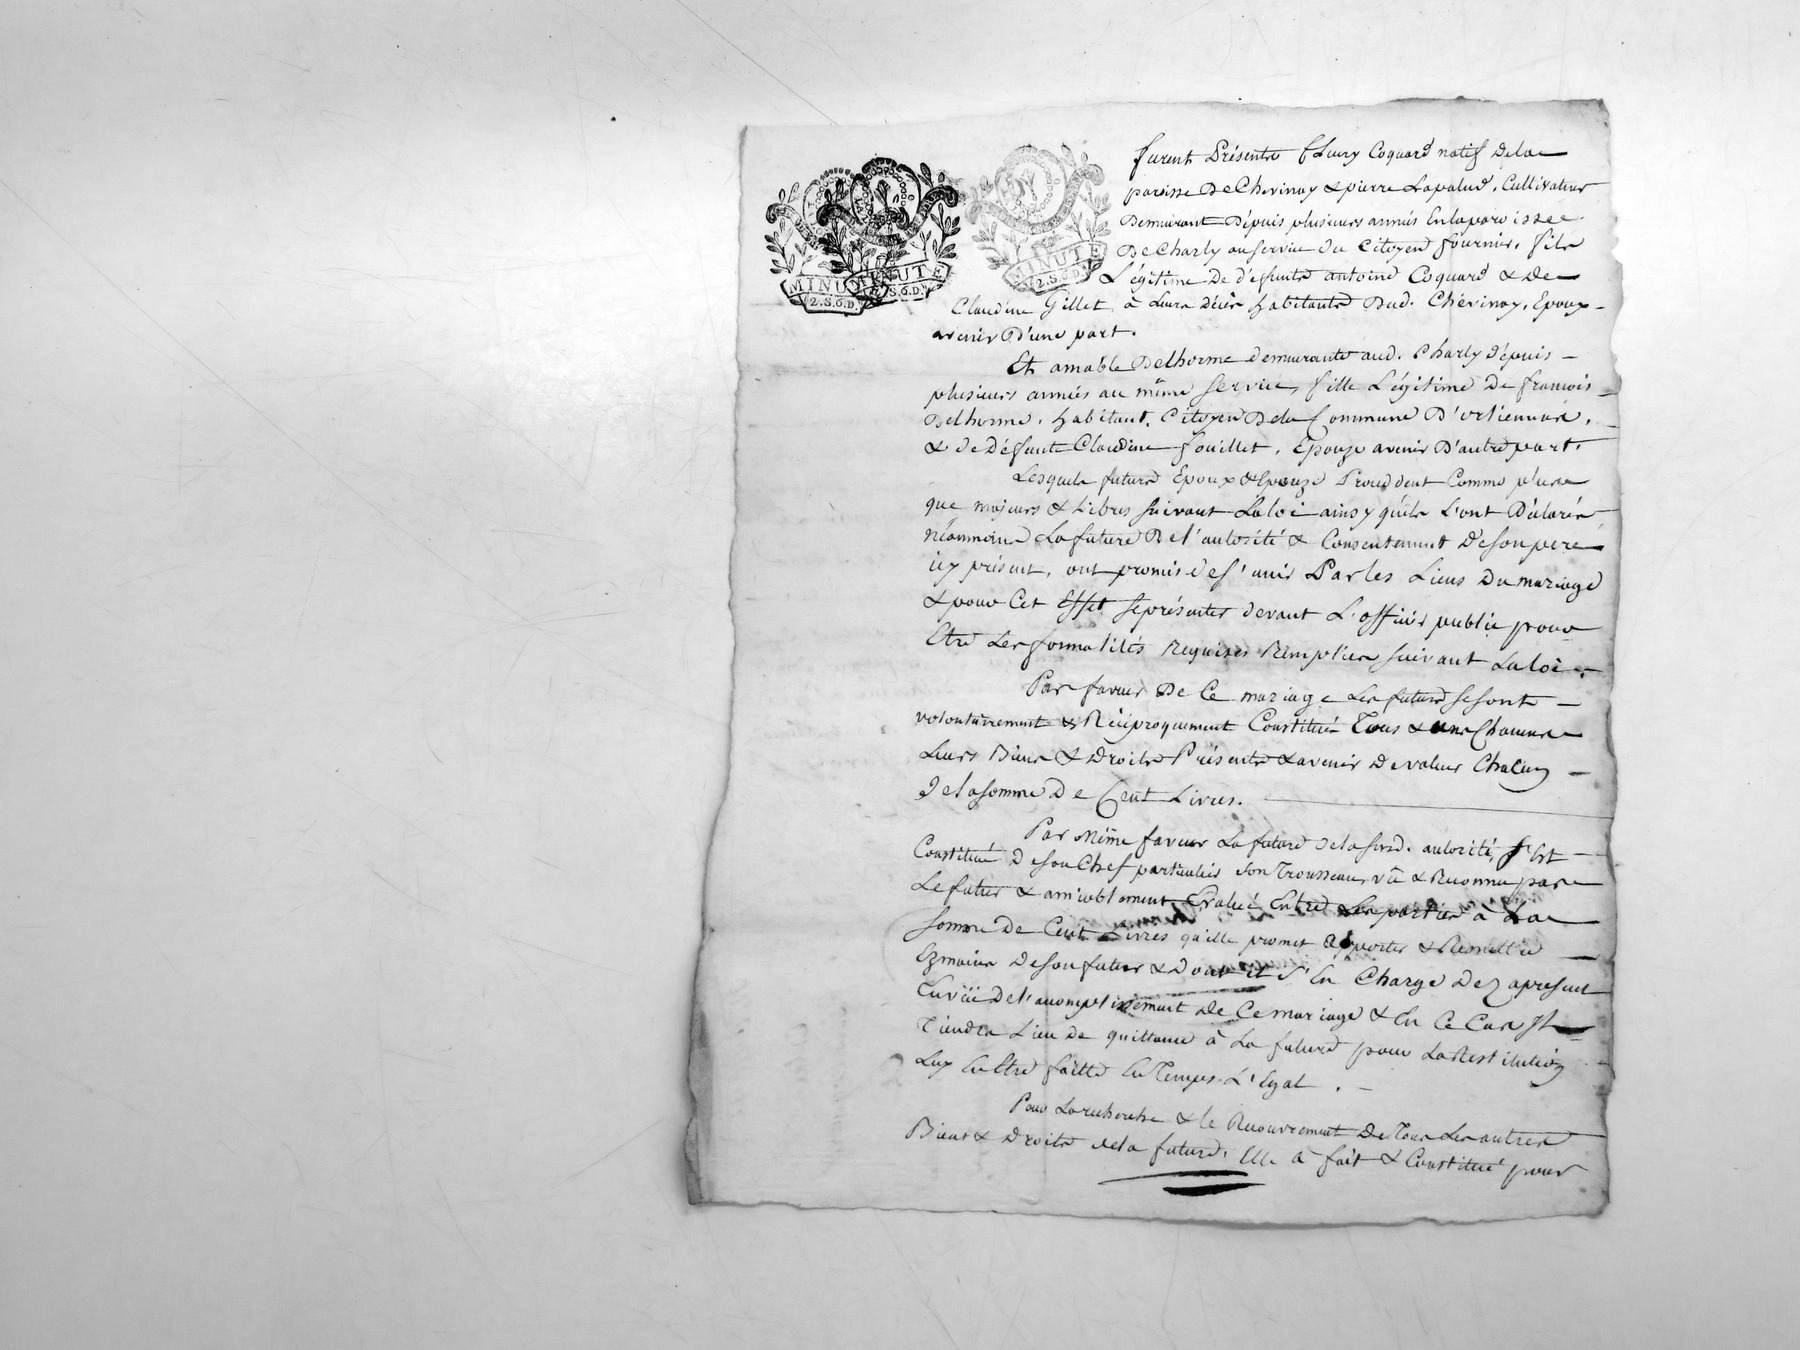 MINUTE
2.S.6.D.
MINUTE
S.6.D.
MINUTE
2.S.6.D.
furent Présents fleury Coquard natif Dela
paroisse De Chevinay & pierre Lapalud, Cultivateur
Demeurant Dépuis plusieurs années En la paroisse
De Charly au service du Citoyen fournier, fils
Légitime De d'éfunts antoine Coquard & De
Claudine Gillet, à Leurs Décès habitants Dud. Chévinay, Epoux
avenir D'une part.
Et amable Delhorme demeurante aud. Charly dépuis
plusieurs années au même service, fille Légitime De françois
Delhorme, habitant, Citoyen Dela Commune D'orliennas,
& de Défunte Claudine fouillet, Epouze avenir D'autre part.
Lesquels futurs Epoux & Epouze Procédent Comme
que majeurs & Libres suivant La loi ainsy qu'ils L'ont Déclarés
néammoins La future De l'autorité & Consentement De son pere
icy présent, ont promis de s'unir Par les Liens Du mariage
& pour Cet Effet se présenter devant L'officier public pour
Etre Les formalités Requises Remplies suivant La loi.
Par faveur De Ce mariage Les futurs se sont
volontairement & Réciproquement Constitués Tous & uns Chacuns
Leurs Biens & Droits Présents & avenir De valeur Chacun
De la somme De Cent Livres.
Par même faveur La future de la susd. autorité, s'Est
Constitué De son Chef particulier son Trousseau, vû & Reconnu par
Le futur & amiablement Evalué Entre Les parties à La
somme De Cent Livres qu'elle promet apporter & Remettre
Ez mains De son futur & Dont il s'En Charge Dez apresent
En vüe de l'accomplissement De Ce mariage & En Ce Cas Il
Tiendra Lieu De quittance à La future pour La Restitution
Luy En Etre faitte En Temps L'Egal.
Pour La recherche & le Recouvrement De Tous Les autres
Biens & Droits de la future, Elle à fait & Constitué pour